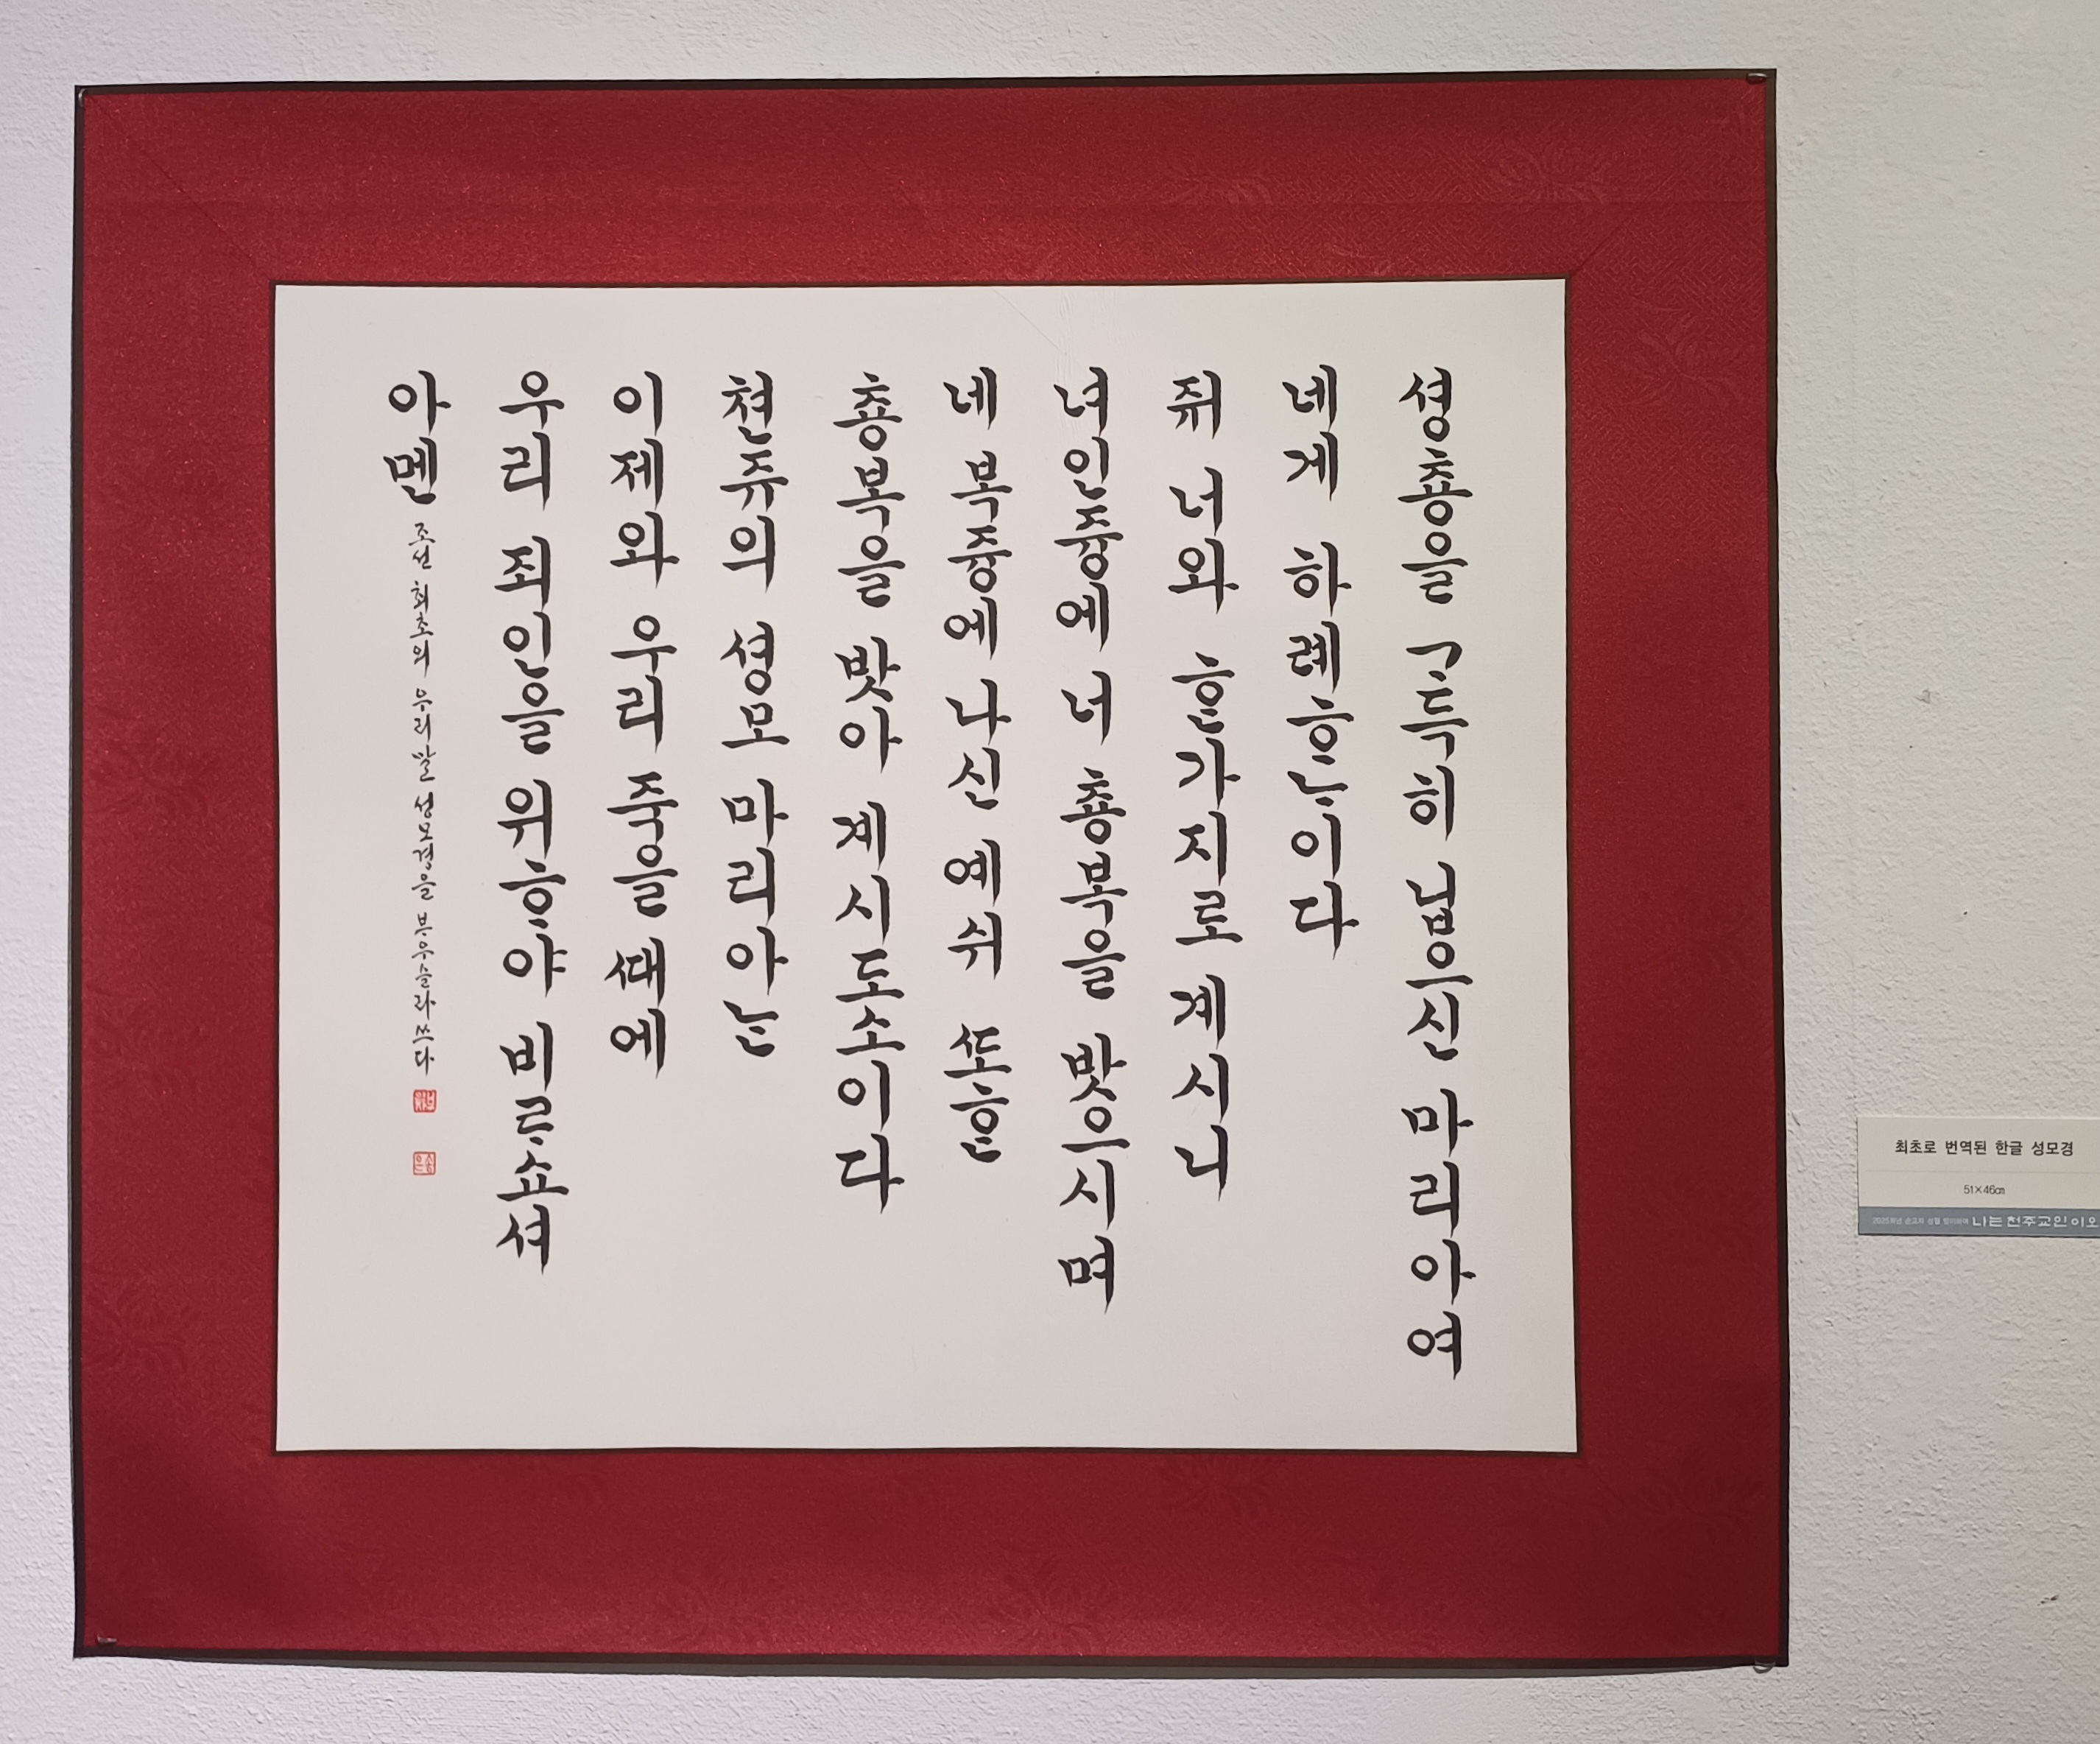 셩춍을 ᄀᆞ득히 닙으신 마리아여
네게 하례ᄒᆞᄂᆞ이다
쥐 너와 ᄒᆞᆫ가지로 계시니
녀인즁에 너 춍복을 밧으시며
네 복즁에 나신 예쉬 ᄯᅩᄒᆞᆫ
춍복을 밧아 계시도소이다
쳔쥬의 셩모 마리아ᄂᆞᆫ
이제와 우리 죽을 ᄯᅢ에
우리 죄인을 위ᄒᆞ야 비ᄅᆞ쇼셔
아멘
조선 최초의 우리말 성모경을 쓰다
최초로 번역된 한글 성모경
51×46㎝
나는 천주교인이오